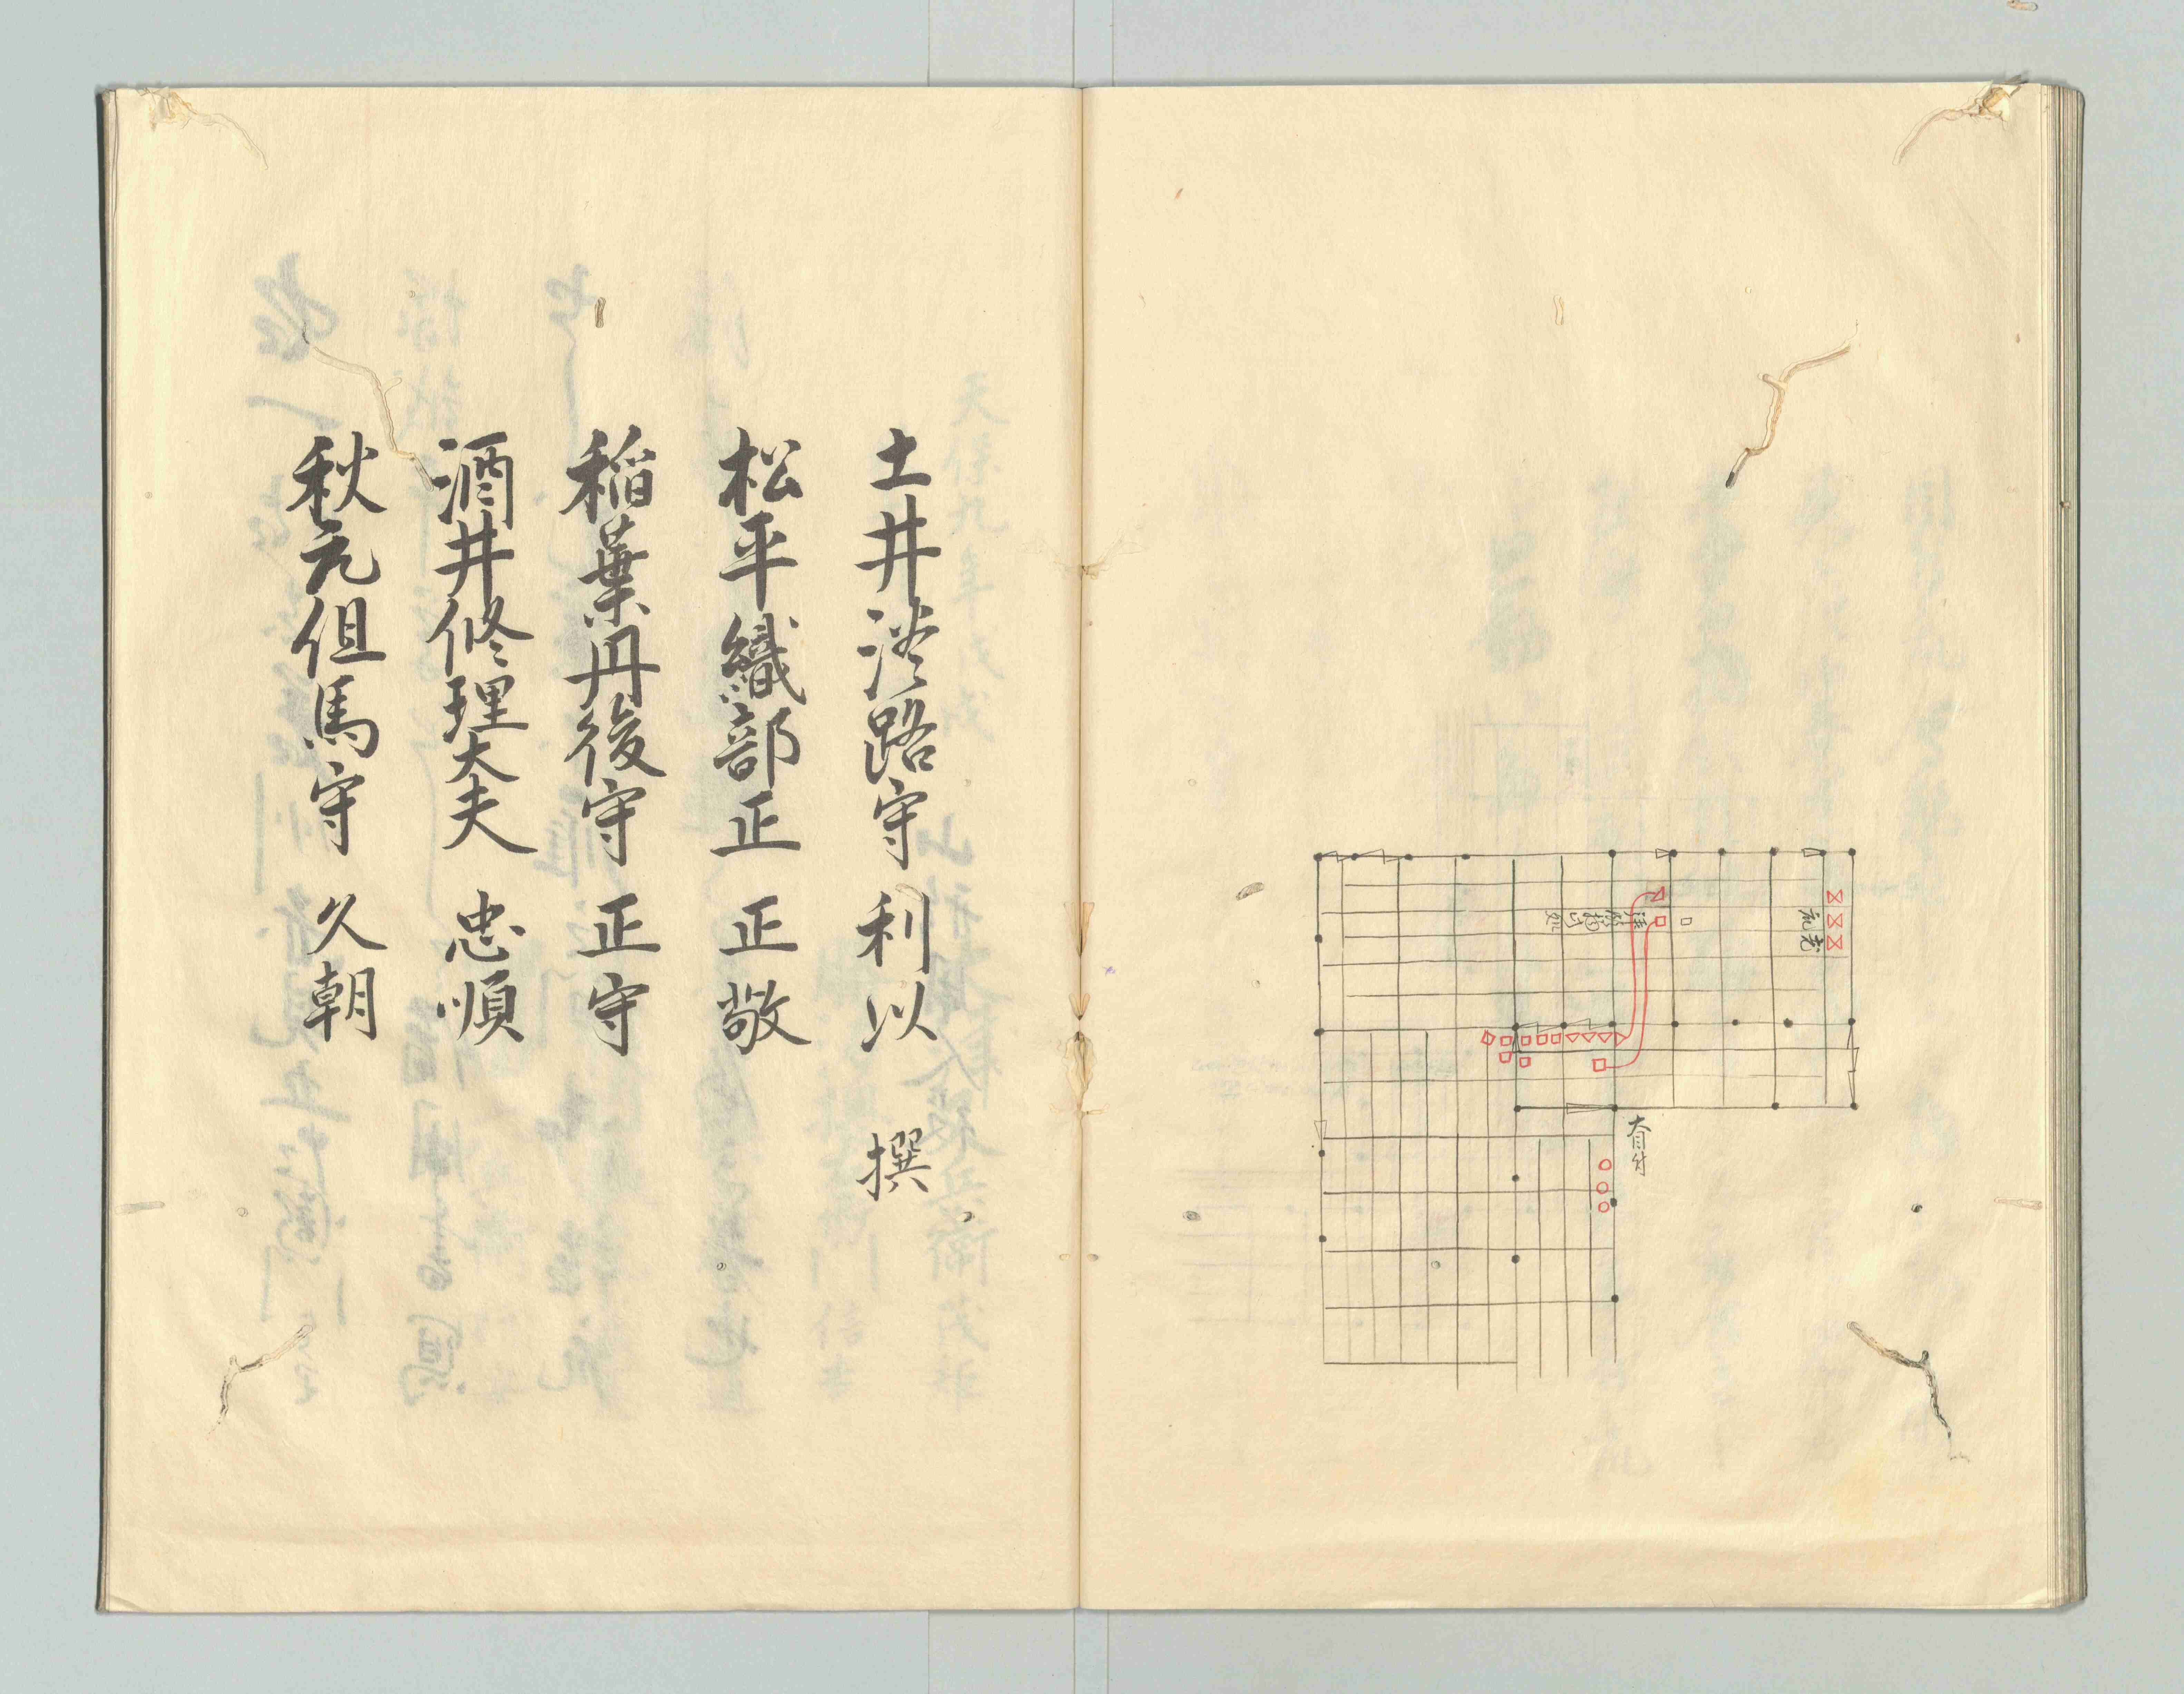 元老
大目付
土井淡路守利以 撰
松平織部正正敬
稲葉丹後守正守
酒井修理大夫忠順
秋元但馬守久朝